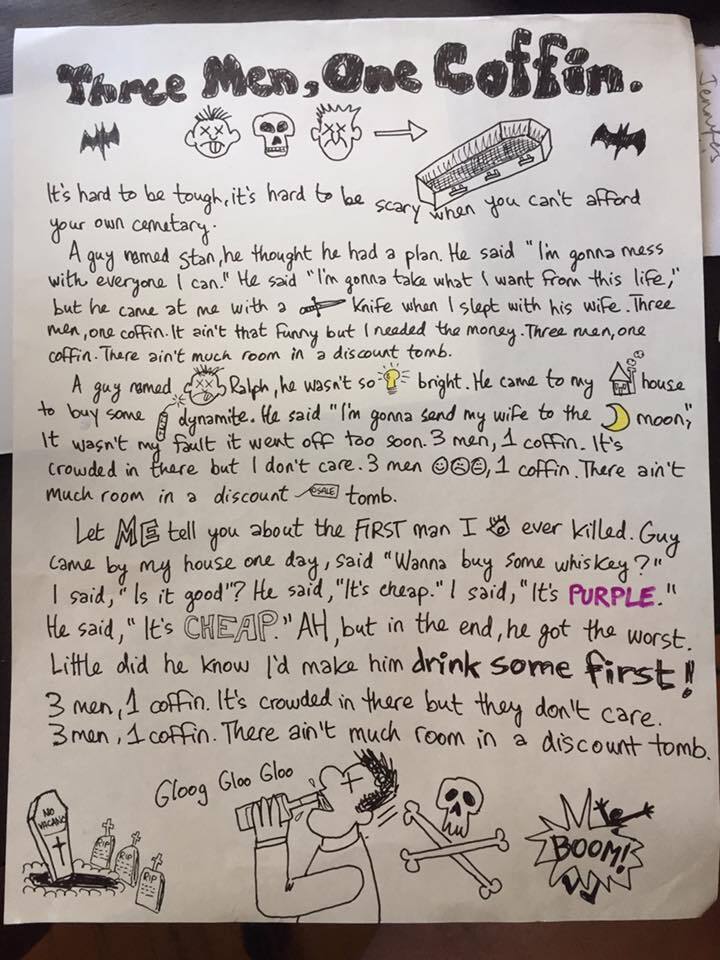 Three Men, One Coffin.
It's hard to be tough, it's hard to be scary when you can't afford
your own cemetary.
A guy named Stan, he thought he had a plan. He said "I'm gonna mess
with everyone I can." He said "I'm gonna take what I want from this life,"
but he came at me with a knife when I slept with his wife. Three
men, one coffin. It ain't that funny but I needed the money. Three men, one
coffin. There ain't much room in a discount tomb.
A guy named Ralph, he wasn't so bright. He came to my house
to buy some dynamite. He said "I'm gonna send my wife to the moon,"
It wasn't my fault it went off too soon. 3 men, 1 coffin. It's
crowded in there but I don't care. 3 men, 1 coffin. There ain't
much room in a discount SALE tomb.
Let ME tell you about the FIRST man I ever killed. Guy
came by my house one day, said "Wanna buy some whiskey?"
I said, "Is it good"? He said, "It's cheap." I said, "It's PURPLE."
He said, "It's CHEAP." AH, but in the end, he got the worst.
Little did he know I'd make him drink some first!!
3 men, 1 coffin. It's crowded in there but they don't care.
3 men, 1 coffin. There ain't much room in a discount tomb.
Gloog Gloo Gloo
NO
VACANCY
RIP
RIP
RIP
BOOM!